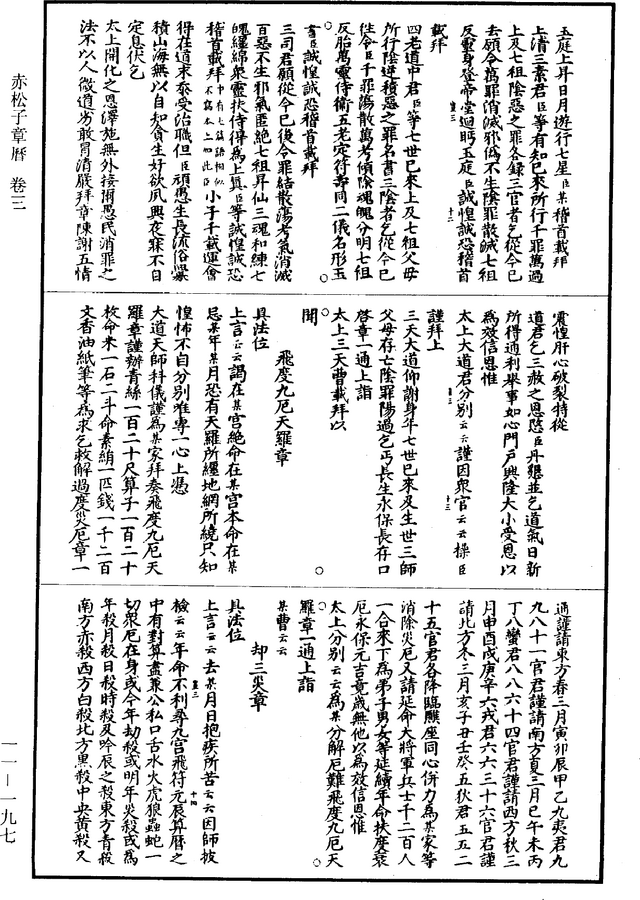 赤松子章曆 卷三
五庭上昇日月遊行七星臣某稽首載拜
上清三素君臣等有知已來所行千罪萬過
上及七祖陰惡之罪各錄三官者乞從今已
去願令萬罪消滅邪偽不生陰罪散滅七祖
反靈身登帝堂迴眄玉庭臣誠惶誠恐稽首
載拜
四老道中君臣等七世已來上及七祖父母
所行陰逆積惡之罪名書三陰者乞從今已
往令臣千罪蕩散萬考傾陰魂魄分明七祖
反胎萬靈侍衛五老定符壽同二儀名形玉
書臣誠惶誠恐稽首載拜
三司君願從今已後令罪結散蕩考氣消滅
百惡不生邪氣匿絕七祖昇仙三魂和練七
魄纏綿衆靈扶侍得為上真臣等誠惶誠恐
稽首載拜中有七篇語相似不寫本上如此臣小子千載運會
得在道末忝受治職但臣頑愚生長流俗釁
積山海無以自知貪生好欲夙興夜寐不自
定息伏乞
太上開化之恩澤施無外接爾愚民消罪之
法不以人微道劣敢冒清嚴拜章陳謝五情
震惶肝心破裂特從
道君乞三赦之恩愍臣丹懇並乞道氣日新
所得通利舉事如心門戶興隆大小受恩以
為效信恩惟
太上大道君分別云云謹因衆官云云操臣
謹拜上
三天大道仰謝身年七世已來及生世三師
父母存亡陰罪陽過乞丐長生永保長存口
啓章一通上詣
太上三天曹載拜以
聞
飛度九厄天羅章
具法位
上言云云謁在某宮絕命在某宮本命在某
忌某年某月恐有天羅所纏地網所繞只知
惶怖不自分別唯專一心上憑
大道天師科儀謹為某家拜奏飛度九厄天
羅章謹辦青絲一百二十尺算子一百二十
枚命米一石二斗命素絹一匹錢一千二百
文香油紙筆等為求乞救解過度災厄章一
通謹請東方春三月寅卯辰甲乙九夷君九
九八十一官君謹請南方夏三月巳午未丙
丁八蠻君八八六十四官君謹請西方秋三
月申酉戌庚辛六戎君六六三十六官君謹
請北方冬三月亥子丑壬癸五狄君五五二
十五官君各降臨醮座同心併力為某家等
消除災厄又請延命大將軍兵士千二百人
一合來下為弟子男女等延續年命扶度衰
厄永保元吉竟歲無他以為效信恩惟
太上分別云云為某分解厄難飛度九厄天
羅章一通上詣
某曹云云
却三災章
具法位
上言云云去某月日抱疾所苦云云因師披
檢云云年命不利尋九宮飛符元辰算曆之
中有對算盡兼公私口舌水火虎狼蟲蛇一
切衆厄在身或今年劫殺或明年災殺或為
年殺月殺日殺時殺及吟辰之殺東方青殺
南方赤殺西方白殺北方黑殺中央黃殺又
一一－一九七